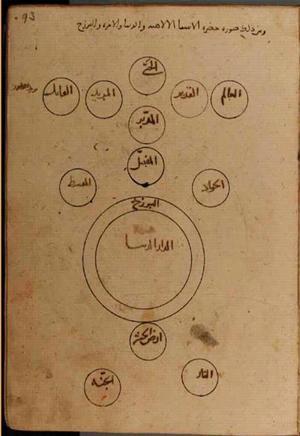 صورة حضرة الاسما الالاهيه والدنيا والاخره والبرزخ
الحي
العالم
القدير
المريد
القايل
المدبر
المفصل
الجواد
المقسط
البرزخ
الدار الدنيا
ارض الحشر
النار
الجنة